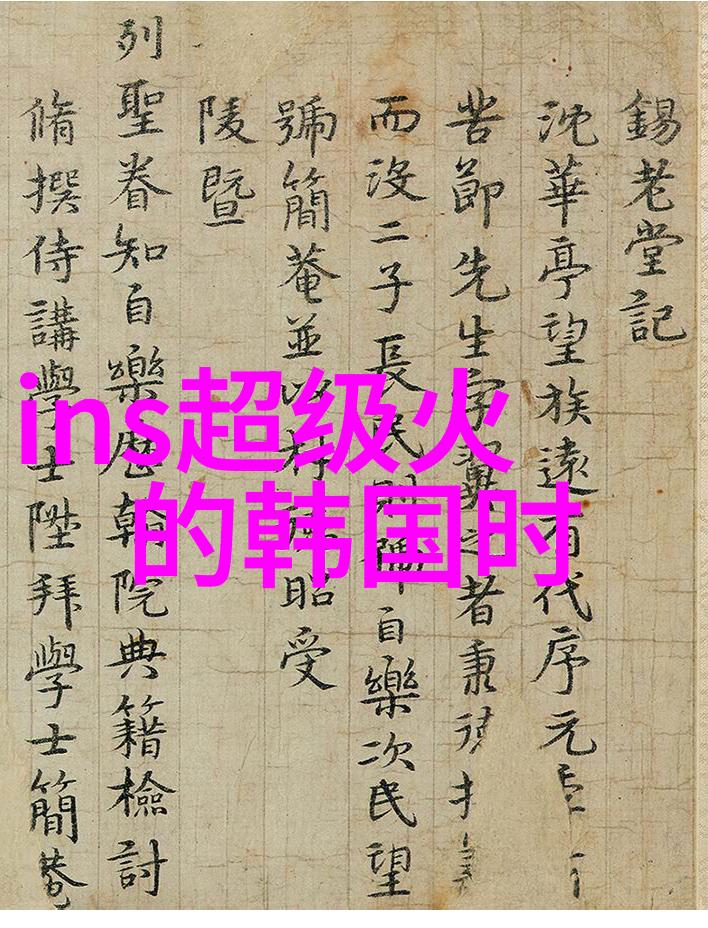 錫老堂記
沈華亭望族遠有代序元
苦節先生字翼之者秉
而沒二子長民則號自樂次民望
號簡菴並以昭受
陵暨
列聖眷知自樂歷翰院典籍檢討
脩撰侍講學士陞拜學士簡菴
ins超级火
的韩国时